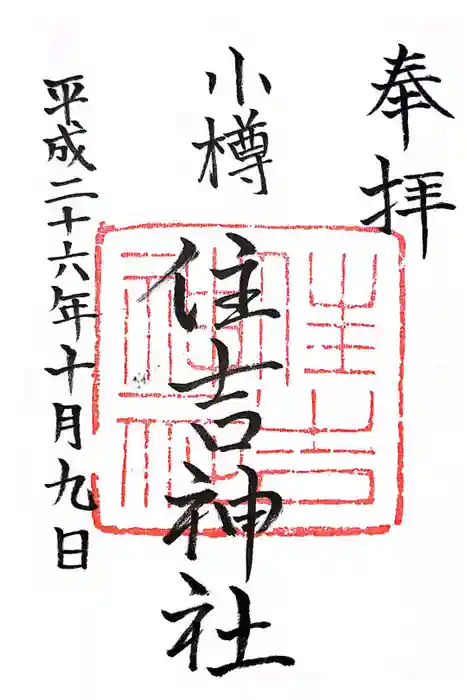 奉拝
小樽
住吉神社
住吉神社
平成二十六年十月九日